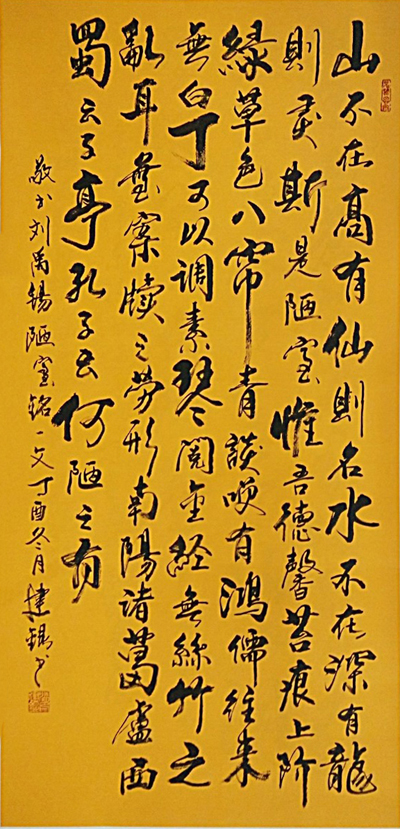 山不在髙有仙則名水不在深有龍
則灵斯是陋室惟吾德馨苔痕上阶
緑草色入帘青談咲有鴻儒往来
無白丁可以调素琴閲金経無絲竹之
亂耳無案牍之劳形南陽诸葛廬西
蜀云子亭孔子云何陋之有
敬书刘禹锡陋室铭一文丁酉冬月建书